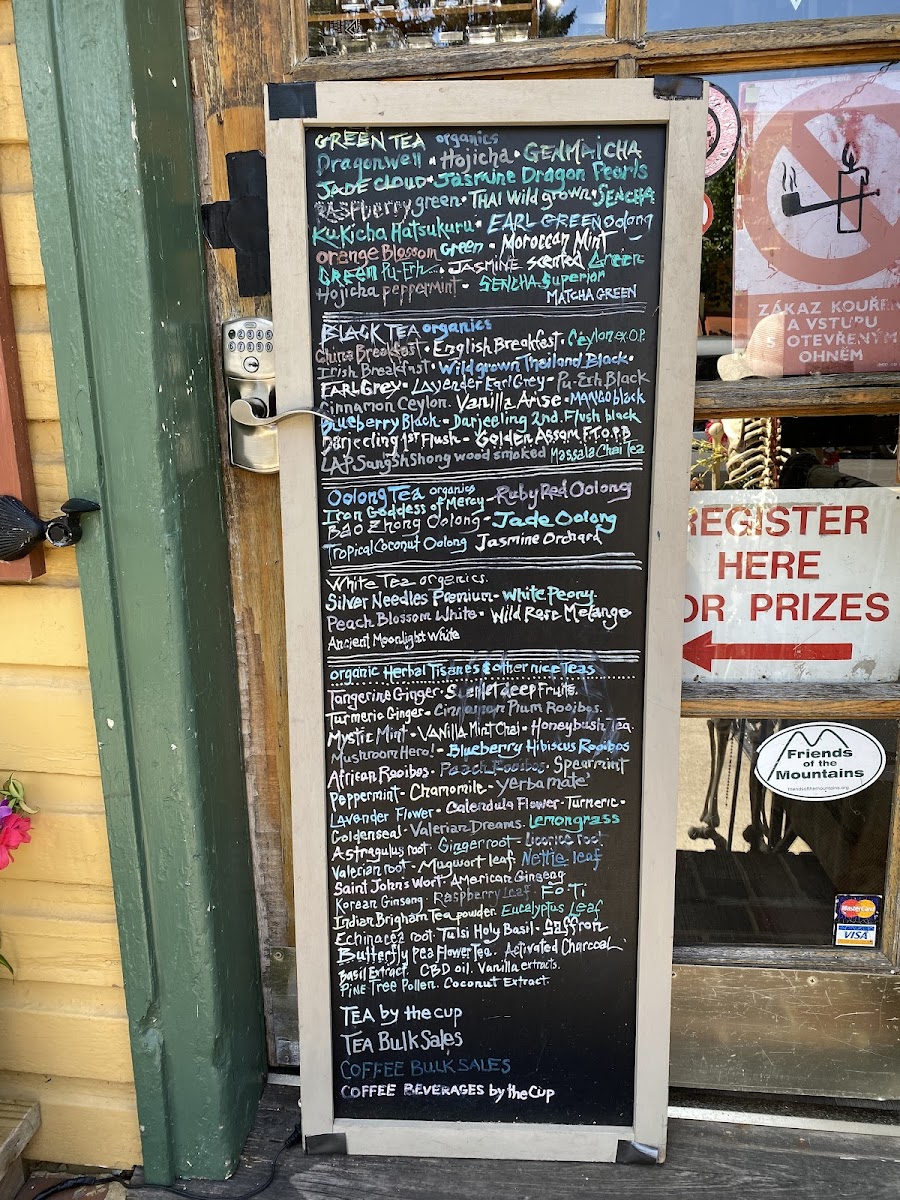 GREEN TEA organics
Dragonwell • Hojicha • GENMAICHA
JADE CLOUD • Jasmine Dragon Pearls
RASPberry green • THAI Wild grown • SENCHA
KuKicha Hatsukuru • EARL GREEN oolong
orange Blossom Green • Moroccan Mint
GREEN Pu-Erh... • JASMINE scented Green
Hojicha peppermint - SENCHA Superior
MATCHA GREEN
BLACK TEA organics
China Breakfast • English Breakfast • Ceylon ex. O.P.
Irish Breakfast • Wild grown Thailand Black •
EARL Grey • Lavender Earl Grey - Pu-Erh Black
Cinnamon Ceylon. Vanilla Arise • MANGO black
Blueberry Black - Darjeeling 2nd. Flush black
Darjeeling 1ST Flush - Golden Assam F.T.O.P.B
LAP Sang Sh Shong wood smoked Massala Chai Tea
Oolong Tea organics
Iron Goddess of Mercy - Ruby Red Oolong
Bao Zhong Oolong - Jade Oolong
Tropical Coconut Oolong Jasmine Orchard
White Tea organics.
Silver Needles Premium - White Peony.
Peach Blossom White • Wild Rose Melange
Ancient Moonlight White
organic Herbal Tisanes & other nice Teas
Tangerine Ginger • Scarlet deep Fruite.
Turmeric Ginger • Cinnamon Plum Rooibos.
Mystic Mint - Vanilla Mint Chai • Honeybush Tea.
Mushroom Hero! - Blueberry Hibiscus Rooibos
African Rooibos • Peach Rooibos • Spearmint
Peppermint - Chamomile - Yerba mate'
Lavender Flower • Calendula Flower - Turmeric •
Goldenseal • Valerian Dreams. Lemongrass
Astragulus root. Ginger root - Licorice root.
Valerian root - Mugwort leaf. Nettle leaf
Saint John's Wort. American Ginseng
Korean Ginseng. Raspberry Leaf. Fo Ti
Indian Brigham Tea powder. Eucalyptus Leaf
Echinacea root. Tulsi Holy Basil - Saffron
Butterfly Pea Flower Tea. Activated Charcoal.
Basil Extract. CBD oil. Vanilla extracts.
Pine Tree Pollen. Coconut Extract.
TEA by the cup
TEA Bulk Sales
COFFEE BULK SALES
COFFEE BEVERAGES by the Cup
ZÁKAZ KOUŘEN
A VSTUPU
S OTEVŘENÝM
OHNĚM
REGISTER
HERE
OR PRIZES
Friends
of the
Mountains
MasterCard
VISA